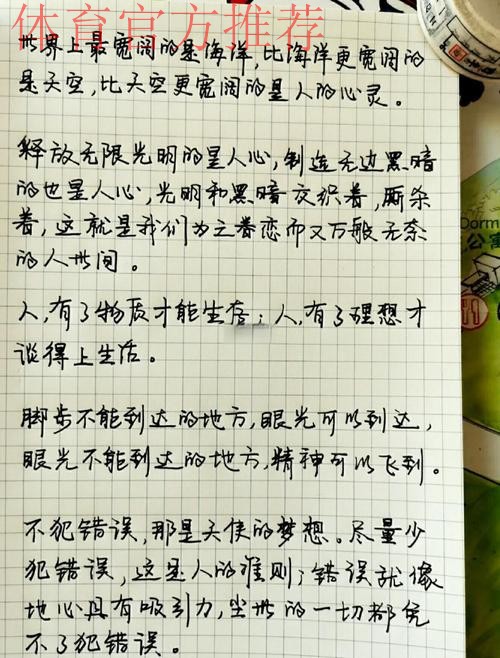 体育官方推荐
世界上最宽阔的是海洋，比海洋更宽阔的
是天空，比天空更宽阔的是人的心灵。
释放无限光明的是人心，制造无边黑暗
的也是人心，光明和黑暗交织着，厮杀
着，这就是我们为之眷恋而又万般无奈
的人世间。
人，有了物质才能生存；人，有了理想才
谈得上生活。
脚步不能到达的地方，眼光可以到达，
眼光不能到达的地方，精神可以飞到。
不犯错误，那是天使的梦想。尽量少
犯错误，这是人的准则；错误就像
地心具有吸引力，尘世的一切都免
不了犯错误。
Dorm
公寓